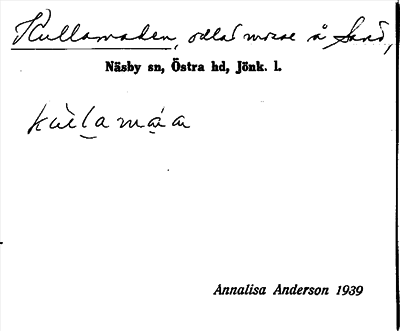 Kullamaden, odlad mosse å Sand,
Näsby sn, Östra hd, Jönk. l.
Annalisa Anderson 1939